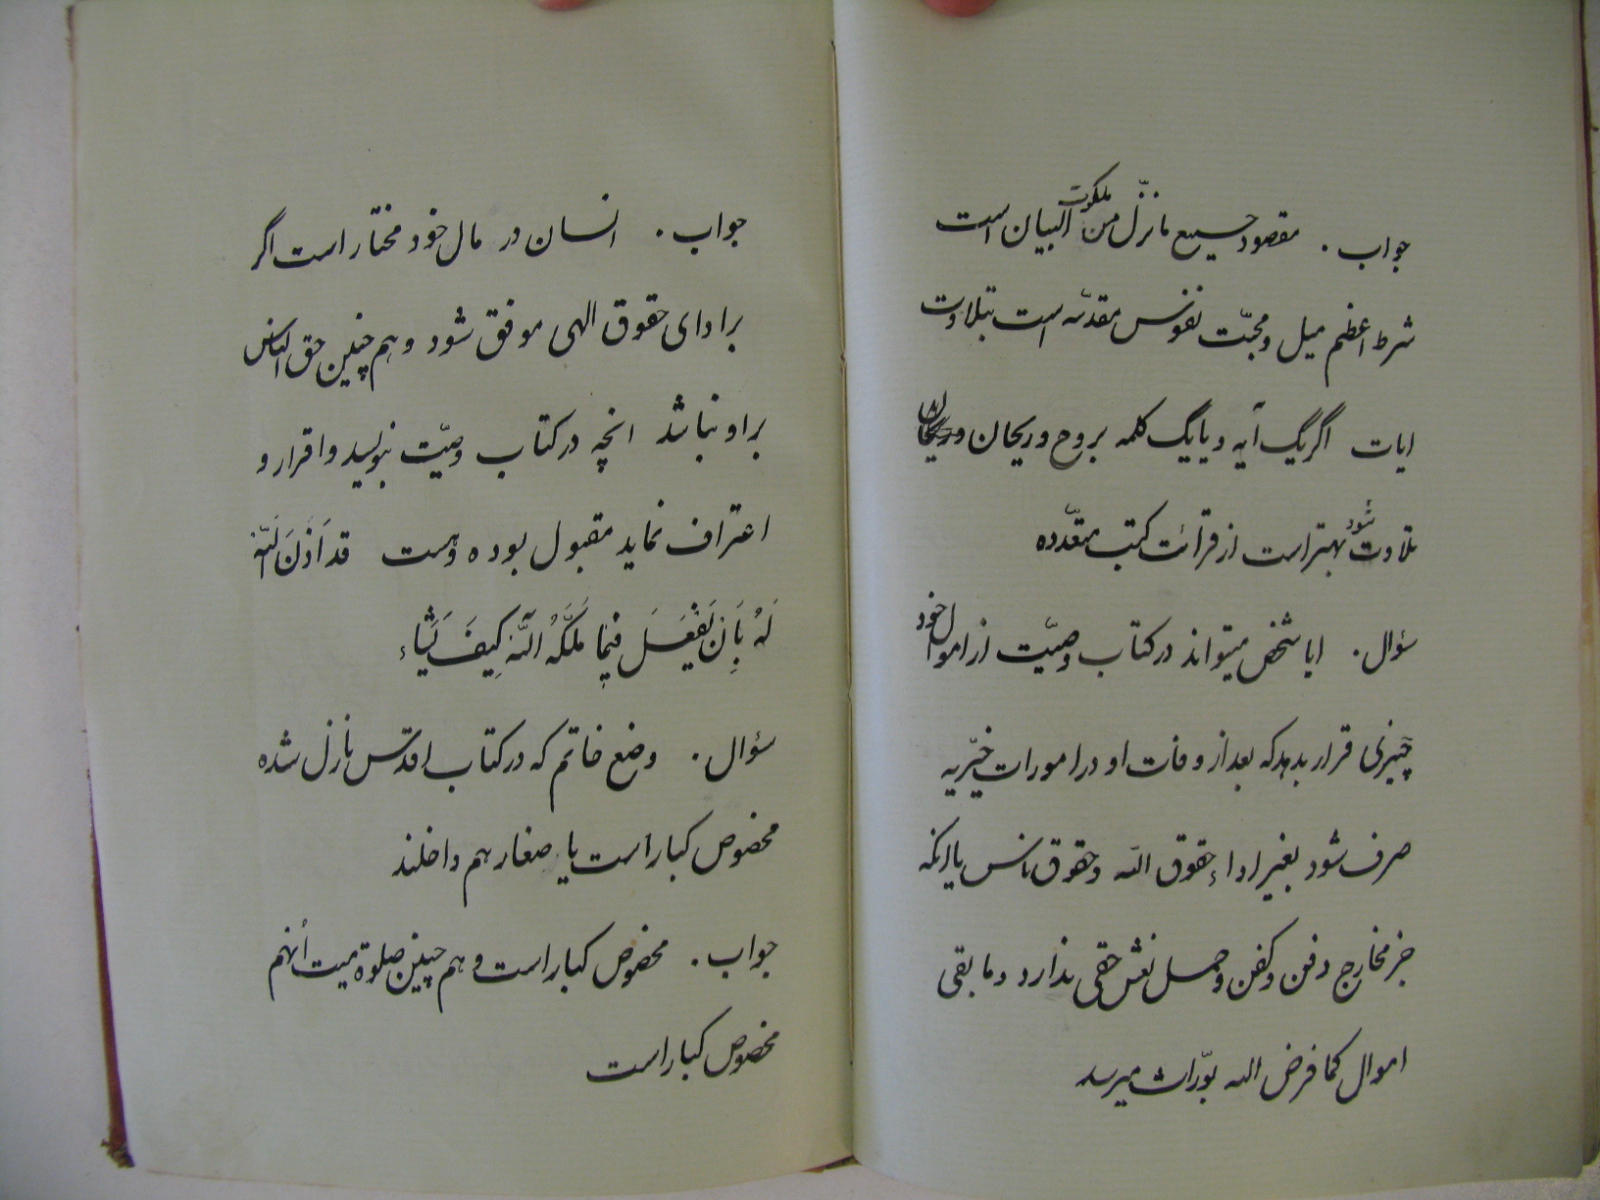 جواب . مقصود جمیع ما نزّل من ملکوت البیان است
شرط اعظم میل و محبّت نفوس مقدّسه است بتلاوت
ایات اگر یک آیه و یا یک کلمه بروح و ریحان
تلاوت شود بهتر است از قرائت کتب متعدّده
سؤال . ایا شخص میتواند در کتاب وصیّت از اموال خود
چیزی قرار بدهد که بعد از وفات او در امورات خیّریه
صرف شود بغیر اداء حقوق اللّه و حقوق ناس یا انکه
جز مخارج دفن و کفن و حمل نعش حقی ندارد و ما بقی
اموال کما فرض اللّه بورّاث میرسد
جواب . انسان در مال خود مختار است اگر
بر ادای حقوق الهی موفق شود و هم چنین حق النّاس
بر او نباشد انچه در کتاب وصیّت بنویسد و اقرار و
اعتراف نماید مقبول بوده و هست قد اَذِنَ اللّه
لَهُ بِاَن یَفْعَلَ فیما مَلَّکَهُ اللّهُ کَیفَ یَشاء
سؤال . وضع خاتم که در کتاب اقدس نازل شده
مخصوص کبار است یا صغار هم داخلند
جواب . مخصوص کبار است و هم چنین صلوة میت انهم
مخصوص کبار است